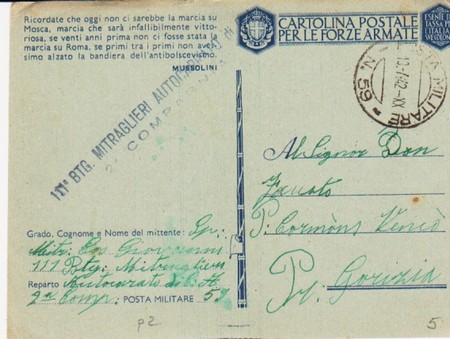 Ricordate che oggi non ci sarebbe la marcia su
Mosca, marcia che sarà infallibilmente vitto-
riosa, se venti anni prima non ci fosse stata la
marcia su Roma, se primi tra i primi non aves-
simo alzato la bandiera dell'antibolscevismo.
MUSSOLINI
CARTOLINA POSTALE
PER LE FORZE ARMATE
ESENTE DA
TASSA PER
L'ITALIA
111° BTG. MITRAGLIERI AUTOCARRATO
2ª COMPAGNIA
POSTA MILITARE
N. 59
Al Signor Dan
Fausto
P. Cormòns
Pr. Gorizia
Grado, Cognome e Nome del mittente:
Mitr. Giovanni
111 Btg. Mitraglieri
Reparto Autocarrato
2ª Comp. POSTA MILITARE 59
p2
5